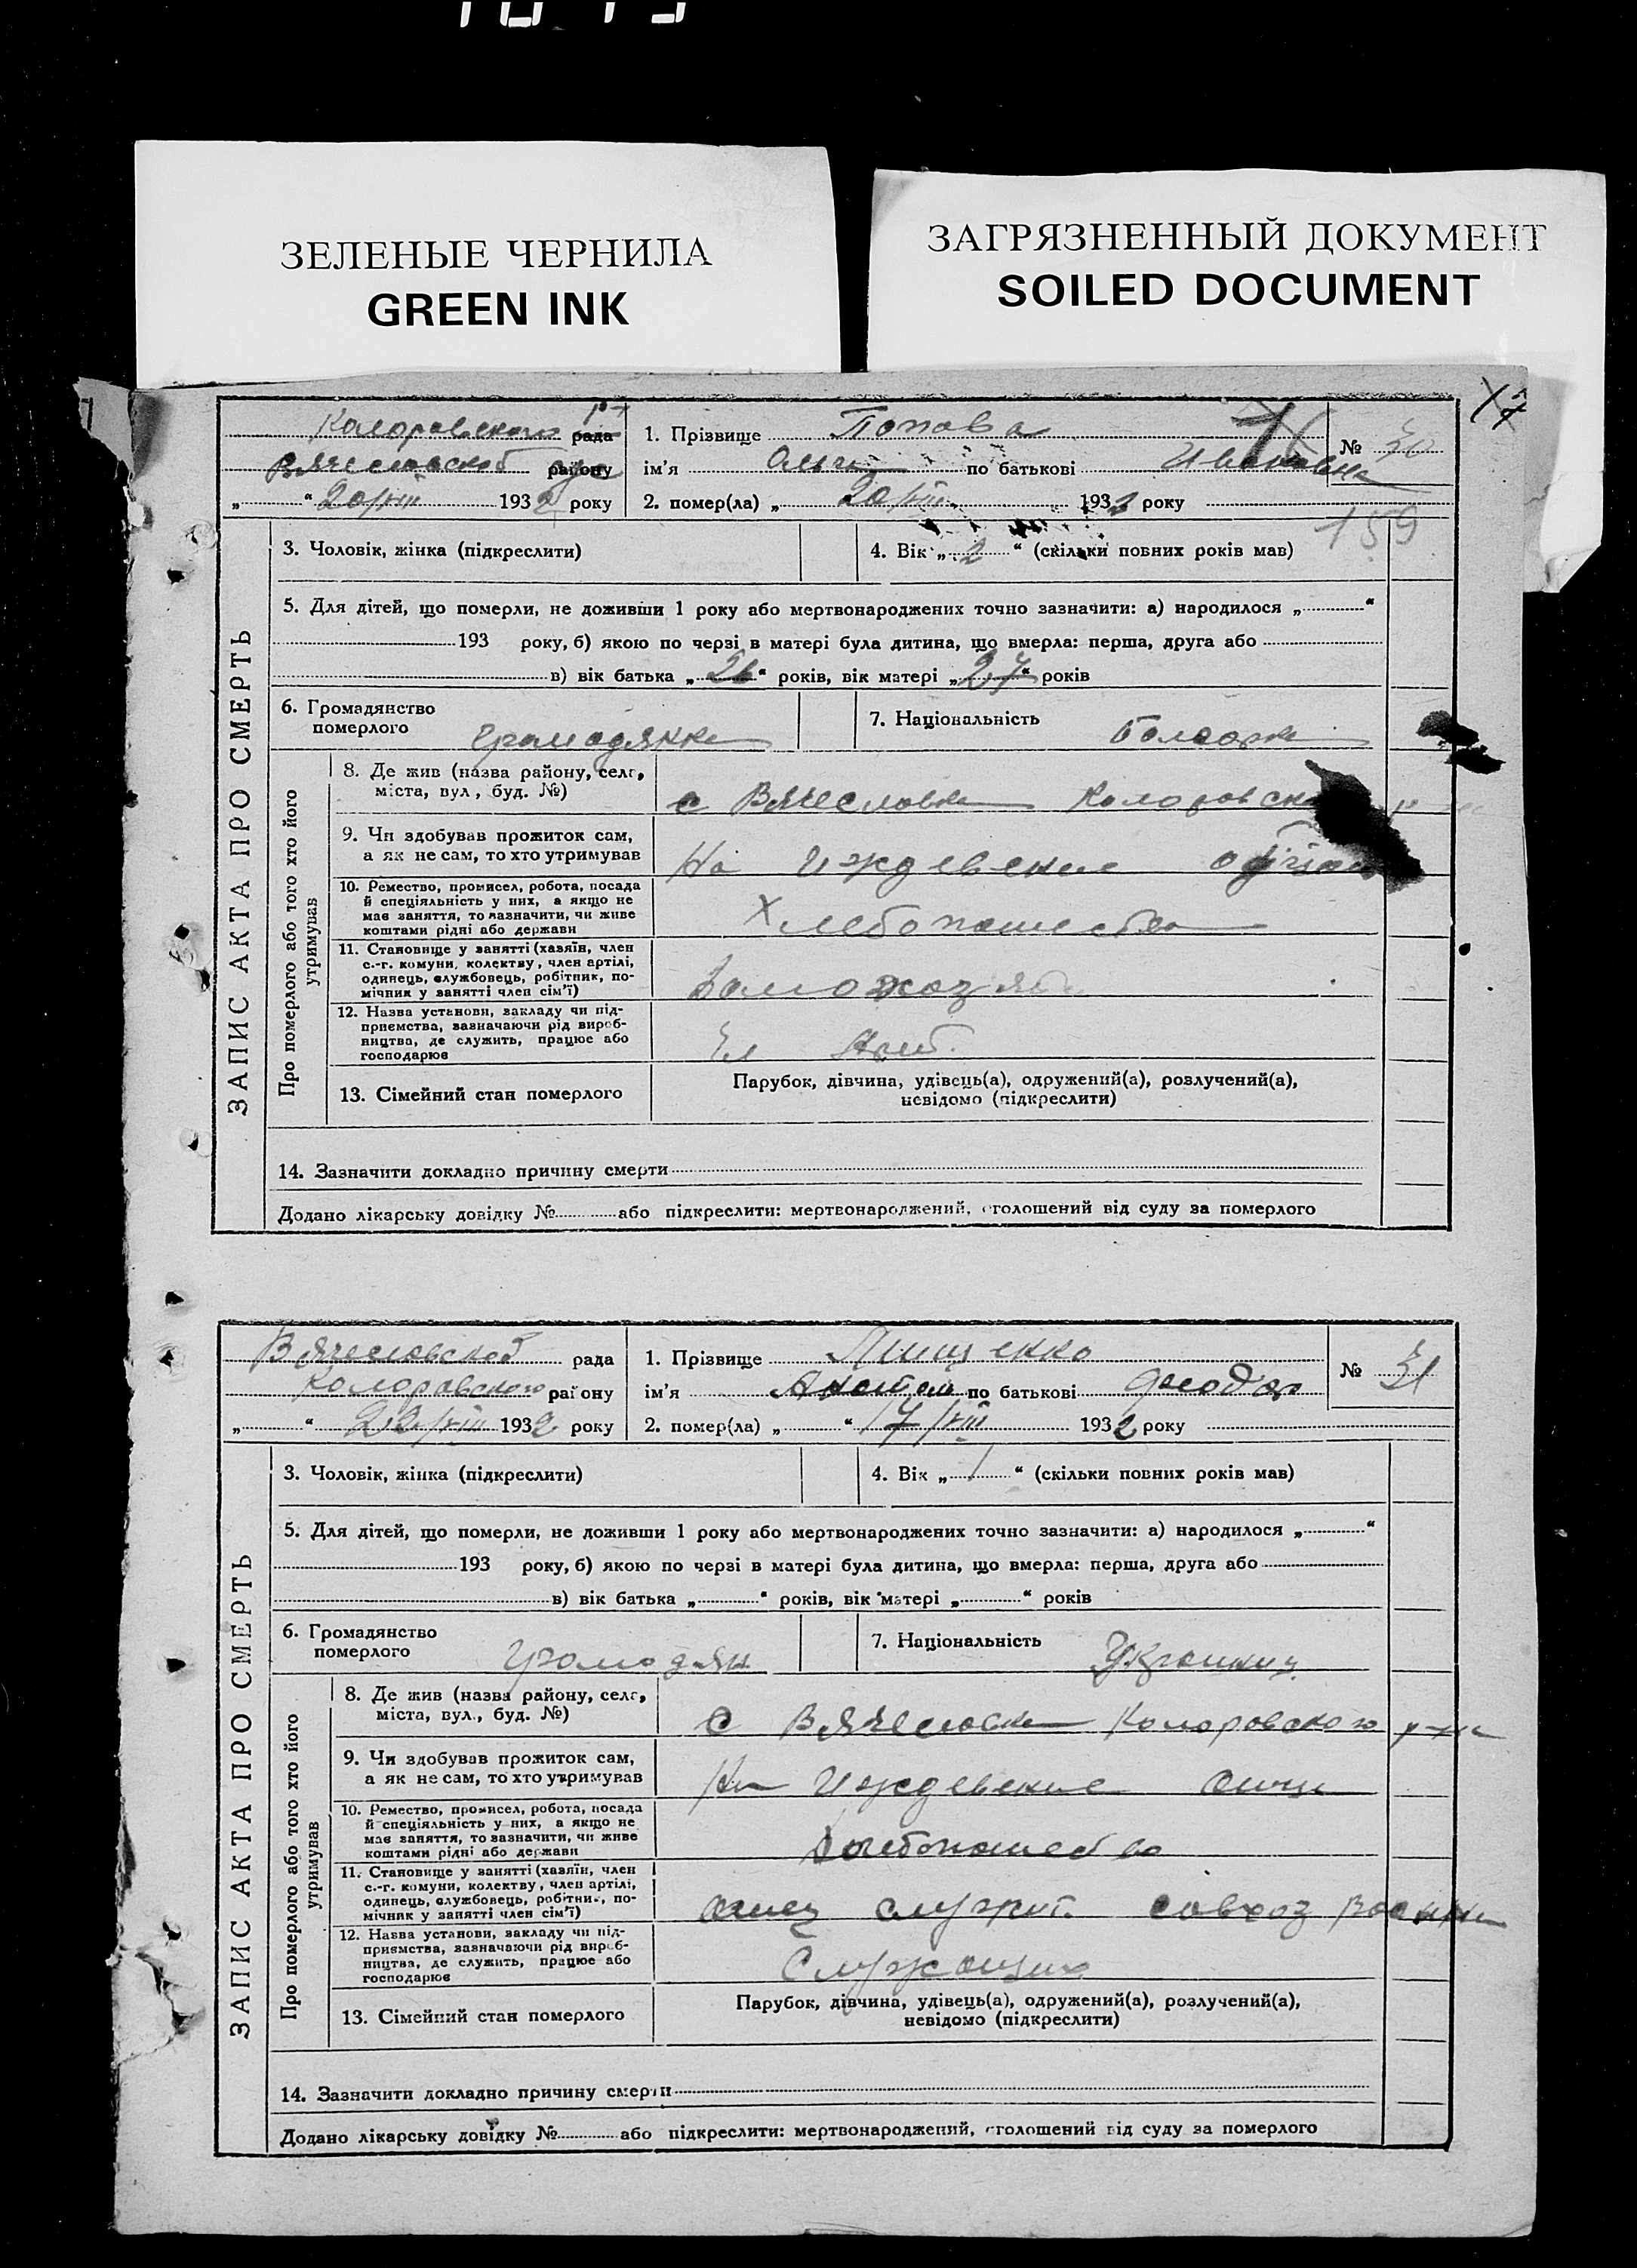 ЗЕЛЕНЫЕ ЧЕРНИЛА
GREEN INK
ЗАГРЯЗНЕННЫЙ ДОКУМЕНТ
SOILED DOCUMENT
ЗАПИС АКТА ПРО СМЕРТЬ
Коларовского рада
Вячеславской району
„ “ 20/VIII 1932 року
1. Прізвище Попова
№ 30
ім'я Ольга по батькові Ивановна
2. помер(ла) „ 20/VIII 1932 року
159
3. Чоловік, жінка (підкреслити)
4. Вік „ 2 “ (скільки повних років мав)
5. Для дітей, що померли, не доживши 1 року або мертвонароджених точно зазначити: а) народилося „ “
193 року, б) якою по черзі в матері була дитина, що вмерла: перша, друга або
в) вік батька „ 26 “ років, вік матері „ 27 “ років
6. Громадянство померлого громадянка
7. Національність болгарка
Про померлого або того хто його утримував
8. Де жив (назва району, село,
міста, вул., буд. №)
с Вячеславка
9. Чи здобував прожиток сам,
а як не сам, то хто утримував
На Иждевение
10. Ремество, промисел, робота, посада
й спеціяльність у них, а якщо не
має заняття, то зазначити, чи живе
коштами рідні або держави
Хлебопашество
11. Становище у занятті (хазяїн, член
с.-г. комуни, колективу, член артілі,
одинець, службовець, робітник, по-
мічник у занятті член сім'ї)
12. Назва установи, закладу чи під-
приємства, зазначаючи рід вироб-
ництва, де служить, працює або
господарює
13. Сімейний стан померлого
Парубок, дівчина, удівець(а), одружений(а), розлучений(а),
невідомо (підкреслити)
14. Зазначити докладно причину смерти
Додано лікарську довідку № або підкреслити: мертвонароджений, оголошений від суду за померлого
ЗАПИС АКТА ПРО СМЕРТЬ
Вячеславской рада
Коларовского району
„ “ 22/VIII 1932 року
1. Прізвище Пищенко
№ 31
ім'я по батькові
2. помер(ла) „ “ 17/VIII 1932 року
3. Чоловік, жінка (підкреслити)
4. Вік „ 1 “ (скільки повних років мав)
5. Для дітей, що померли, не доживши 1 року або мертвонароджених точно зазначити: а) народилося „ “
193 року, б) якою по черзі в матері була дитина, що вмерла: перша, друга або
в) вік батька „ “ років, вік матері „ “ років
6. Громадянство померлого громадян
7. Національність Украинец
Про померлого або того хто його утримував
8. Де жив (назва району, село,
міста, вул., буд. №)
с Вячеславка Коларовского р-на
9. Чи здобував прожиток сам,
а як не сам, то хто утримував
На Иждевение отца
10. Ремество, промисел, робота, посада
й спеціяльність у них, а якщо не
має заняття, то зазначити, чи живе
коштами рідні або держави
Хлебопашество
11. Становище у занятті (хазяїн, член
с.-г. комуни, колективу, член артілі,
одинець, службовець, робітник, по-
мічник у занятті член сім'ї)
отец служит совхоз
12. Назва установи, закладу чи під-
приємства, зазначаючи рід вироб-
ництва, де служить, працює або
господарює
Служащих
13. Сімейний стан померлого
Парубок, дівчина, удівець(а), одружений(а), розлучений(а),
невідомо (підкреслити)
14. Зазначити докладно причину смерти
Додано лікарську довідку № або підкреслити: мертвонароджений, оголошений від суду за померлого